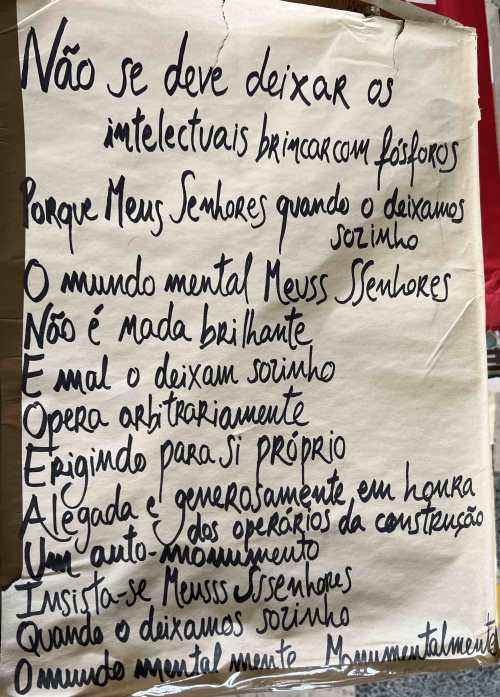 Não se deve deixar os
intelectuais brincar com fósforos
Porque Meus Senhores quando o deixamos
sozinho
O mundo mental Meuss SSenhores
Não é nada brilhante
E mal o deixam sozinho
Opera arbitrariamente
Erigindo para si próprio
Alegada e generosamente em honra
dos operários da construção
Um auto-monumento
Insista-se Meusss Sssenhores
Quando o deixamos sozinho
O mundo mental mente Monumentalmente